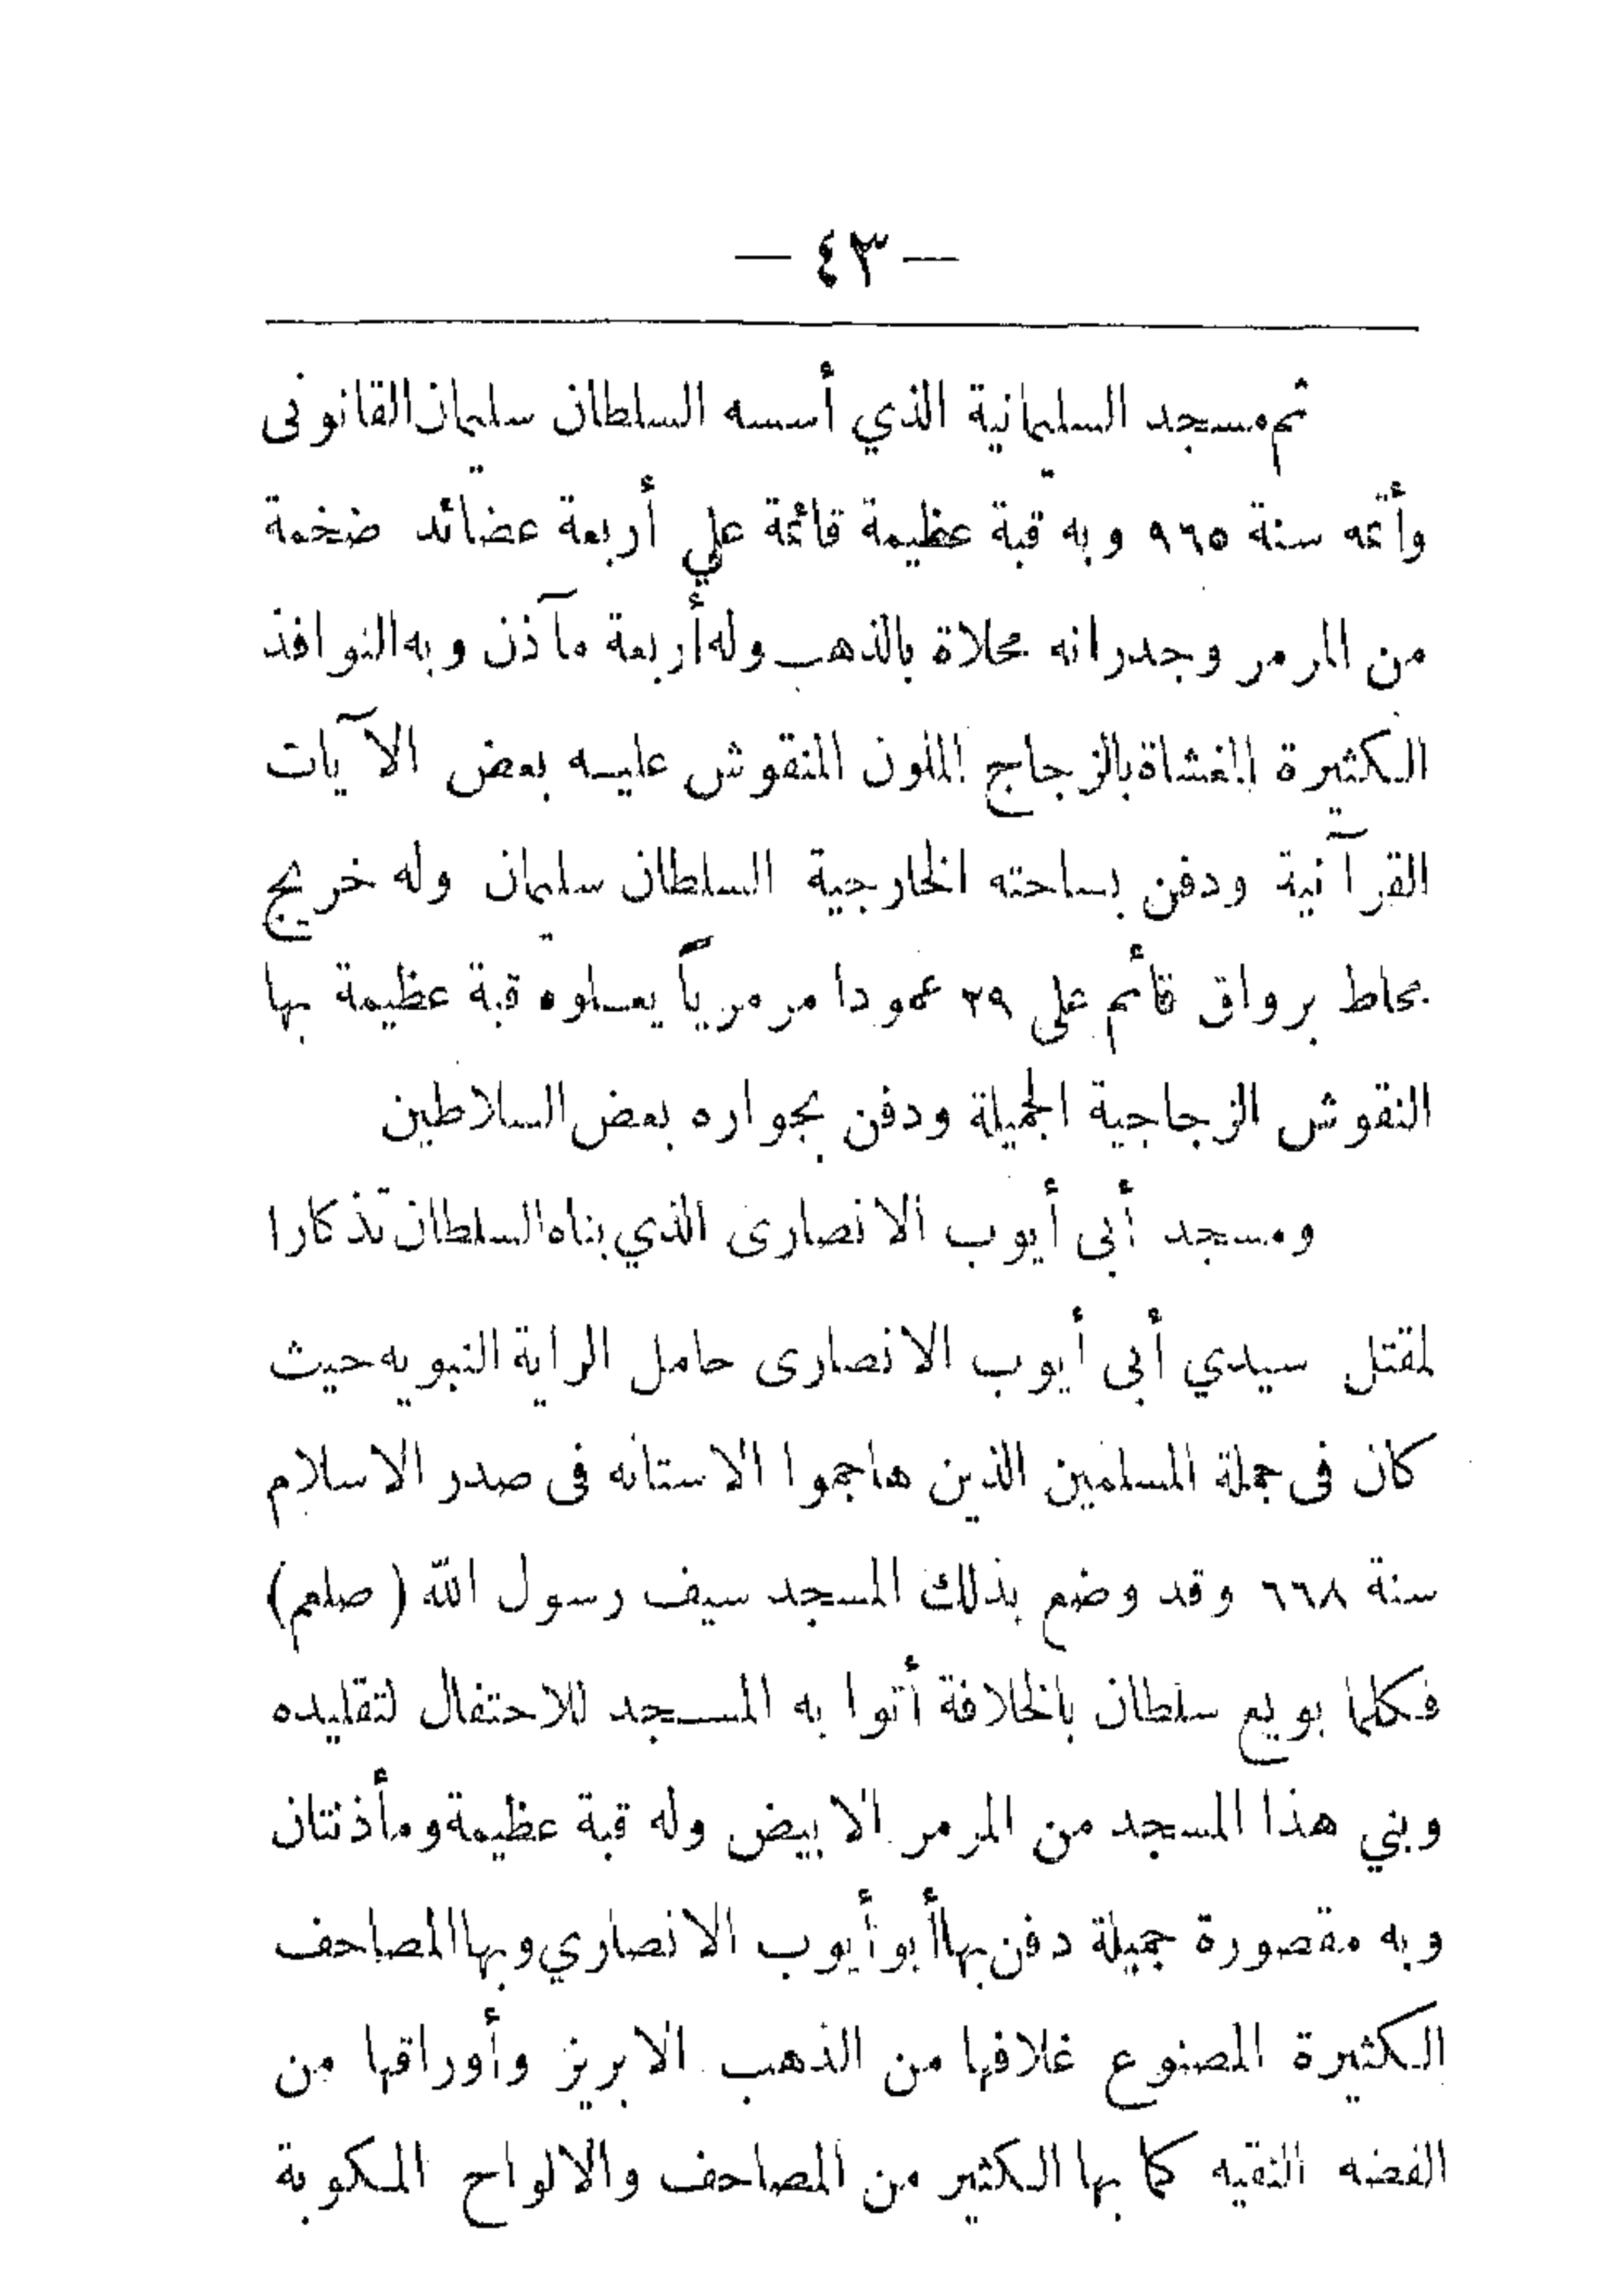 — ٤٣ —
ثم مسجد السليمانية الذي أسسه السلطان سليمان القانونى
وأتمه سنة ٩٦٥ وبه قبة عظيمة قائمة علي أربعة عضائد ضخمة
من المرمر وجدرانه محلاة بالذهب وله أربعة مآذن وبه النوافذ
الكثيرة المغشاة بالزجاج الملون المنقوش عليه بعض الآيات
القرآنية ودفن بساحته الخارجية السلطان سليمان وله خريج
محاط برواق قائم على ٢٩ عمودا مرمرياً يعلوه قبة عظيمة بها
النقوش الزجاجية الجميلة ودفن بجواره بعض السلاطين
ومسجد أبى أيوب الانصارى الذي بناه السلطان تذكارا
لمقتل سيدي أبى أيوب الانصارى حامل الراية النبويه حيث
كان فى جملة المسلمين الذين هاجموا الاستانه فى صدر الاسلام
سنة ٦٦٨ وقد وضع بذلك المسجد سيف رسول الله ( صلعم )
فكلما بويع سلطان بالخلافة أتوا به المسجد للاحتفال لتقليده
وبني هذا المسجد من المرمر الابيض وله قبة عظيمة ومأذنتان
وبه مقصورة جميلة دفن بها أبو أيوب الانصاري وبها المصاحف
الكثيرة المصنوع غلافها من الذهب الابريز وأوراقها من
الفضه النقيه كما بها الكثير من المصاحف والالواح المكوبة